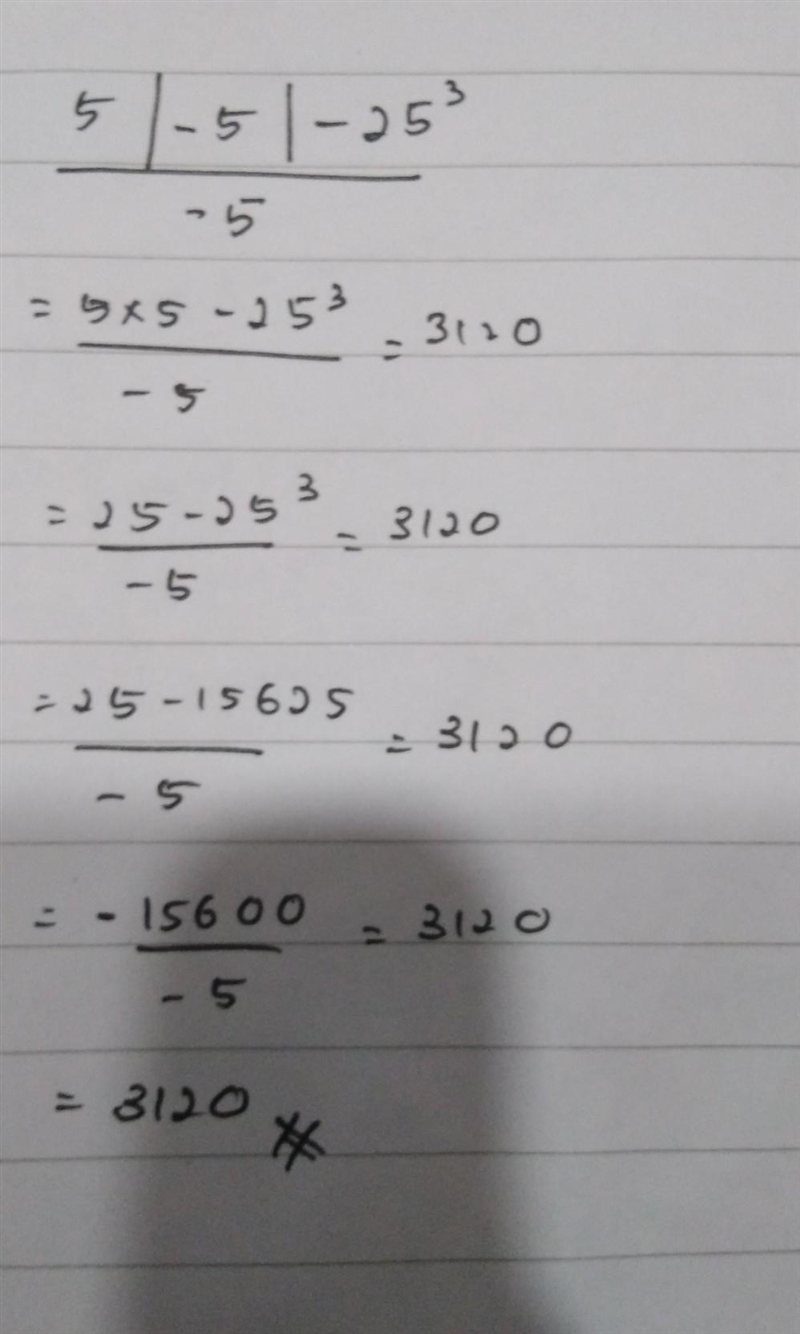 5 |-5| -25³
-5
= 5×5 -25³ = 3120
-5
= 25-25³ = 3120
-5
= 25-15625 = 3120
-5
= -15600 = 3120
-5
= 3120